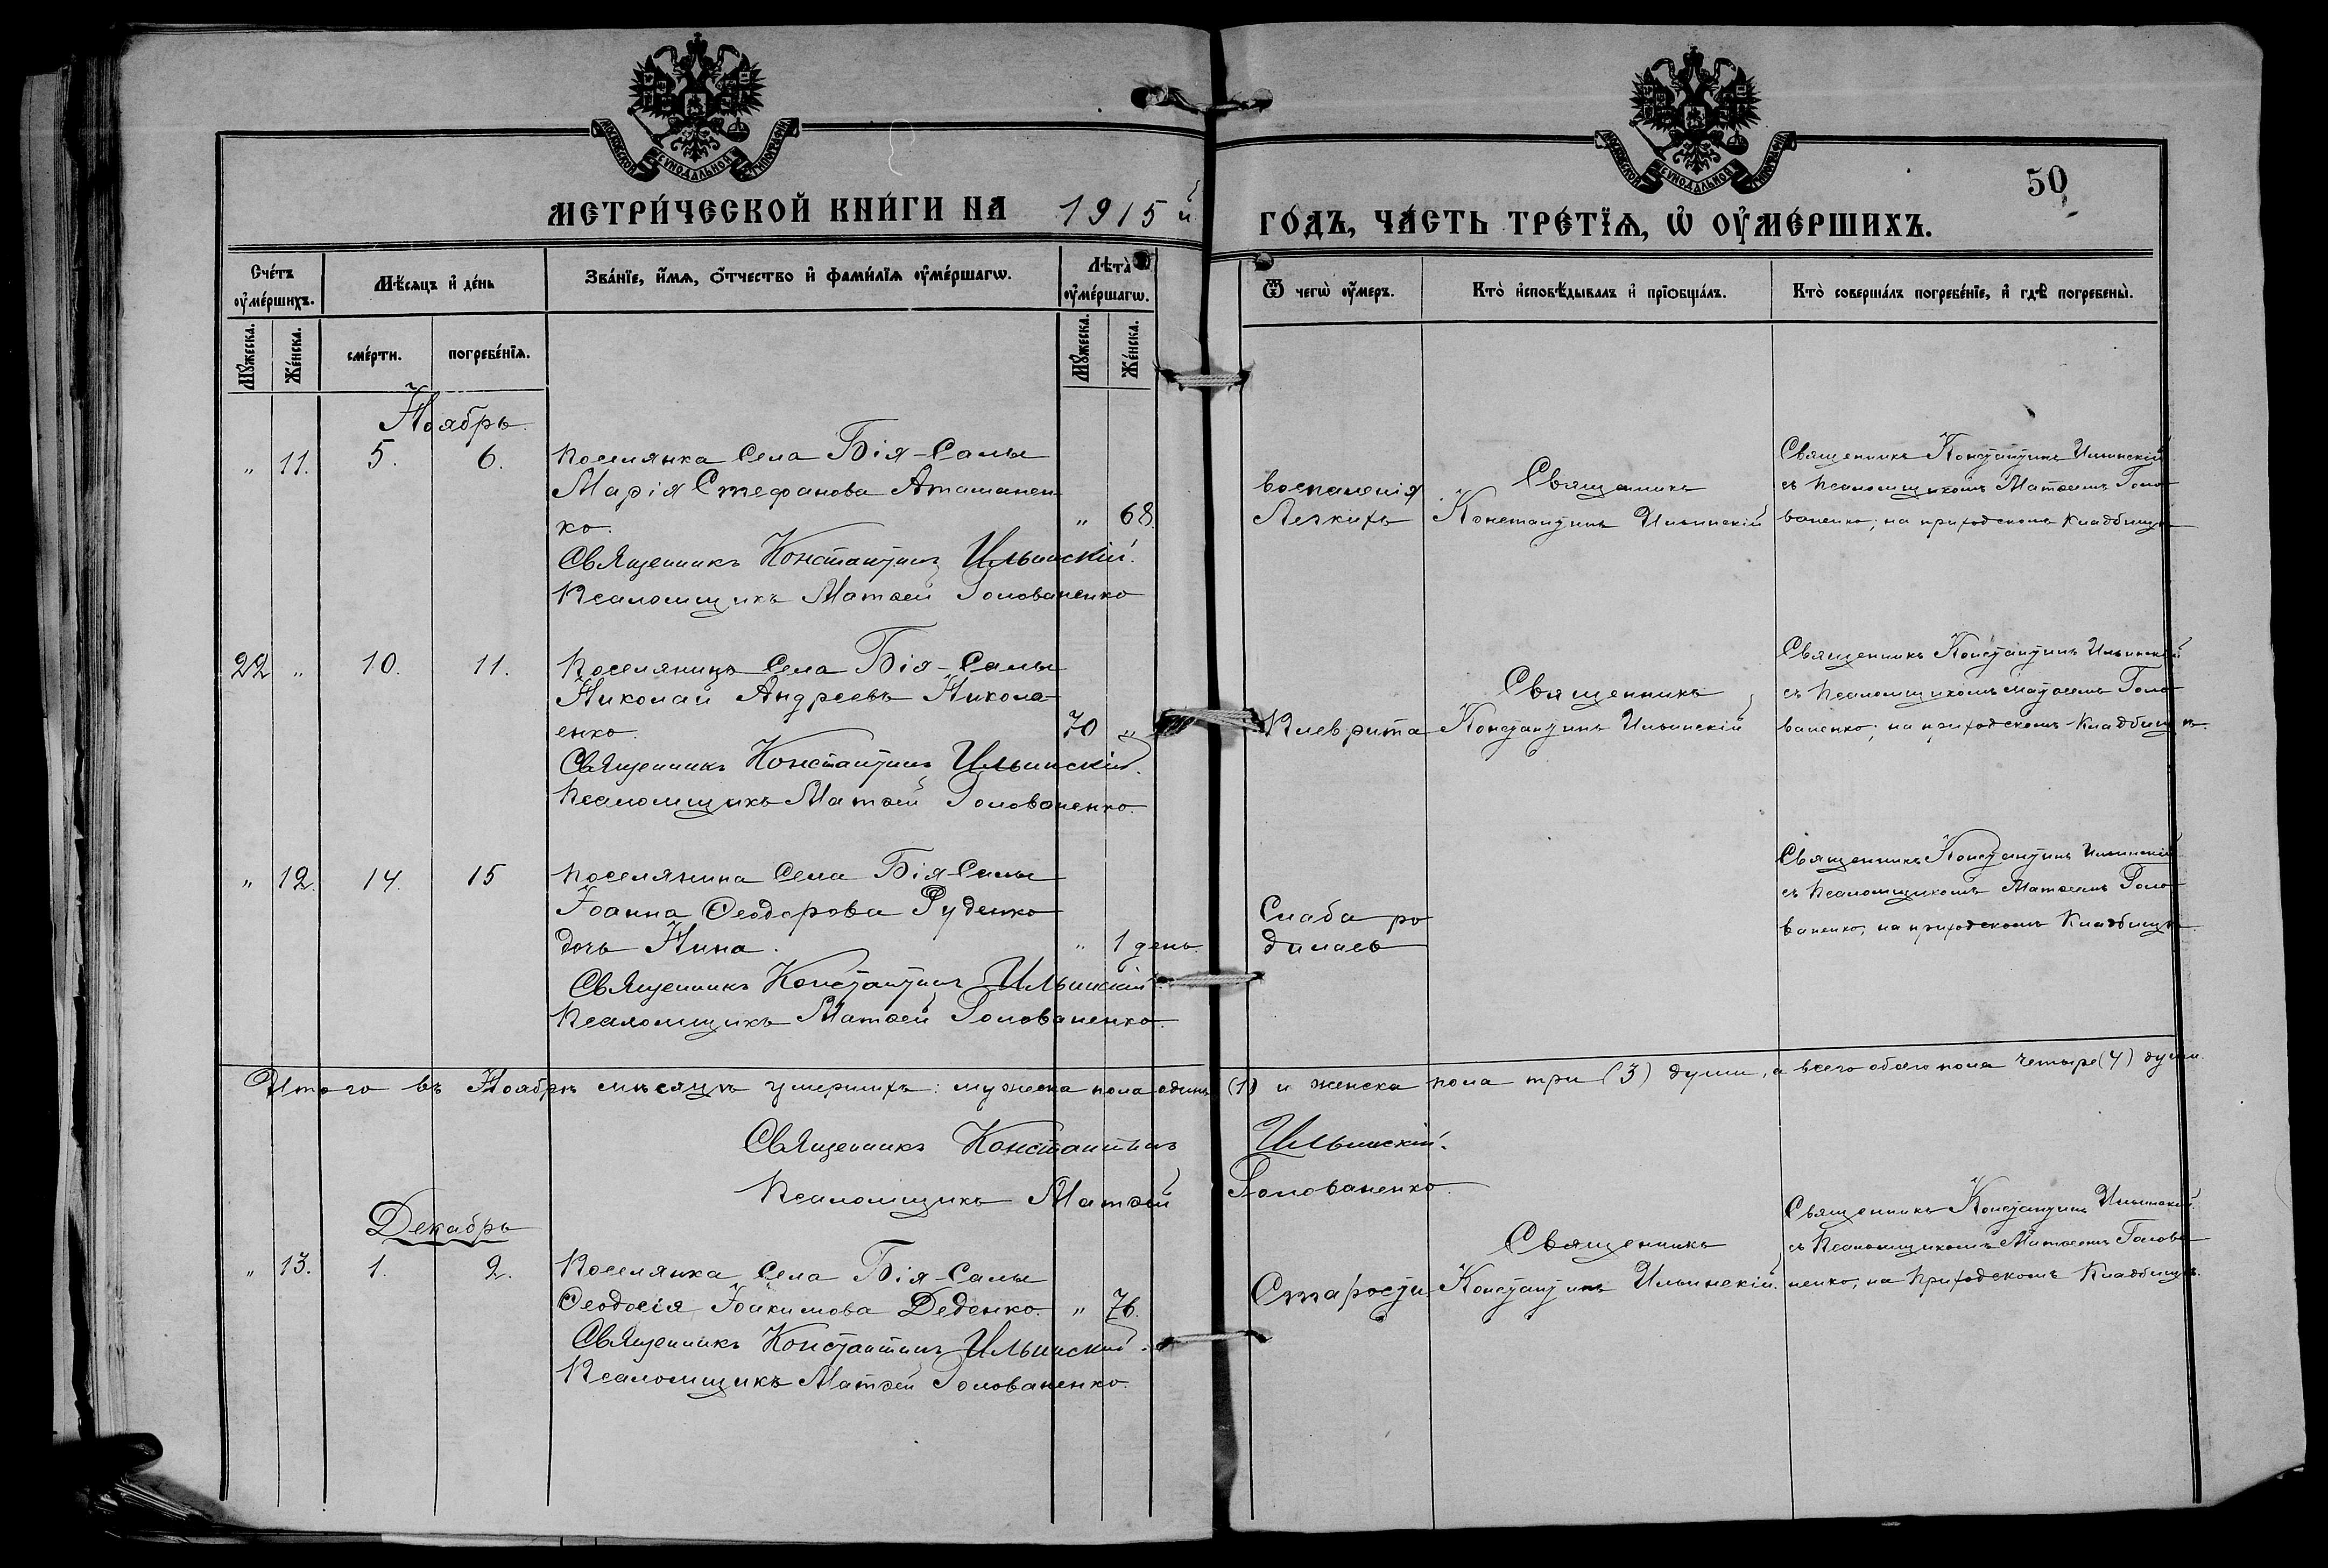 МОСКОВСКОЙ СѴНОДАЛЬНОЙ ТИПОГРАФІИ
МОСКОВСКОЙ СѴНОДАЛЬНОЙ ТИПОГРАФІИ
50
МЕТРИ́ЧЕСКОЙ КНИ́ГИ НА 1915 й
ГО́ДЪ, ЧА́СТЬ ТРЕ́ТЇѦ, Ѡ҆ ОУ҆МЕ́РШИХЪ.
Сче́тъ оу҆ме́ршихъ.
Мѣ́сяцъ и҆ де́нь
Зва́нїе, и҆́мѧ, ѻ҆́тчество и҆ фами́лїѧ оу҆ме́ршагѡ.
Лѣ́та оу҆ме́ршагѡ.
Ѿ чегѡ̀ оу҆́меръ.
Кто̀ и҆сповѣ́дывалъ и҆ прїѻбща́лъ.
Кто̀ соверша́лъ погребе́нїе, и҆ гдѣ̀ погребены̀.
Мꙋ́жеска.
Же́нска.
сме́рти.
погребе́нїѧ.
Мꙋ́жеска.
Же́нска.
Ноябрь.
" 11. 5. 6. Поселянка Села Бія-Салы
Марія Стефанова Аташанен-
ко. " 68.
Священникъ Константинъ Ильинскій.
Псаломщикъ Матѳей Голованенко
Воспаленія
Легкихъ
Священникъ
Константинъ Ильинскій
Священникъ Константинъ Ильинскій
съ Псаломщикомъ Матѳеемъ Голо-
ваненко; на приходскомъ кладбищѣ
22 " 10. 11. Поселянинъ Села Бія-Салы
Николай Андреевъ Никола-
енко. 70 "
Священникъ Константинъ Ильинскій.
Псаломщикъ Матѳей Голованенко.
Плеврита
Священникъ
Константинъ Ильинскій
Священникъ Константинъ Ильинскій
съ Псаломщикомъ Матѳеемъ Голо-
ваненко; на приходскомъ Кладбищѣ.
" 12. 14. 15 Поселянина Села Бія-Салы
Іоанна Ѳеодорова Руденко
дочь Нина. " 1 день.
Священникъ Константинъ Ильинскій
Псаломщикъ Матѳей Голованенко.
Слаба ро
дилась
Священникъ Константинъ Ильинскій
съ Псаломщикомъ Матѳеемъ Голо-
ваненко, на приходскомъ Кладбищѣ.
Итого въ Ноябрѣ мѣсяцѣ умершихъ: мужеска пола одинъ (1) и женска пола три (3) души, а всего обоего пола четыре (4) души.
Священникъ Константинъ Ильинскій.
Псаломщикъ Матѳей Голованенко.
Декабрь
" 13. 1. 2. Поселянка Села Бія-Салы
Ѳеодосія Іоакимова Деденко. " 76.
Священникъ Константинъ Ильинскій.
Псаломщикъ Матѳей Голованенко.
Старости
Священникъ
Константинъ Ильинскій.
Священникъ Константинъ Ильинскій.
съ Псаломщикомъ Матѳеемъ Голова-
ненко, на Приходскомъ Кладбищѣ.